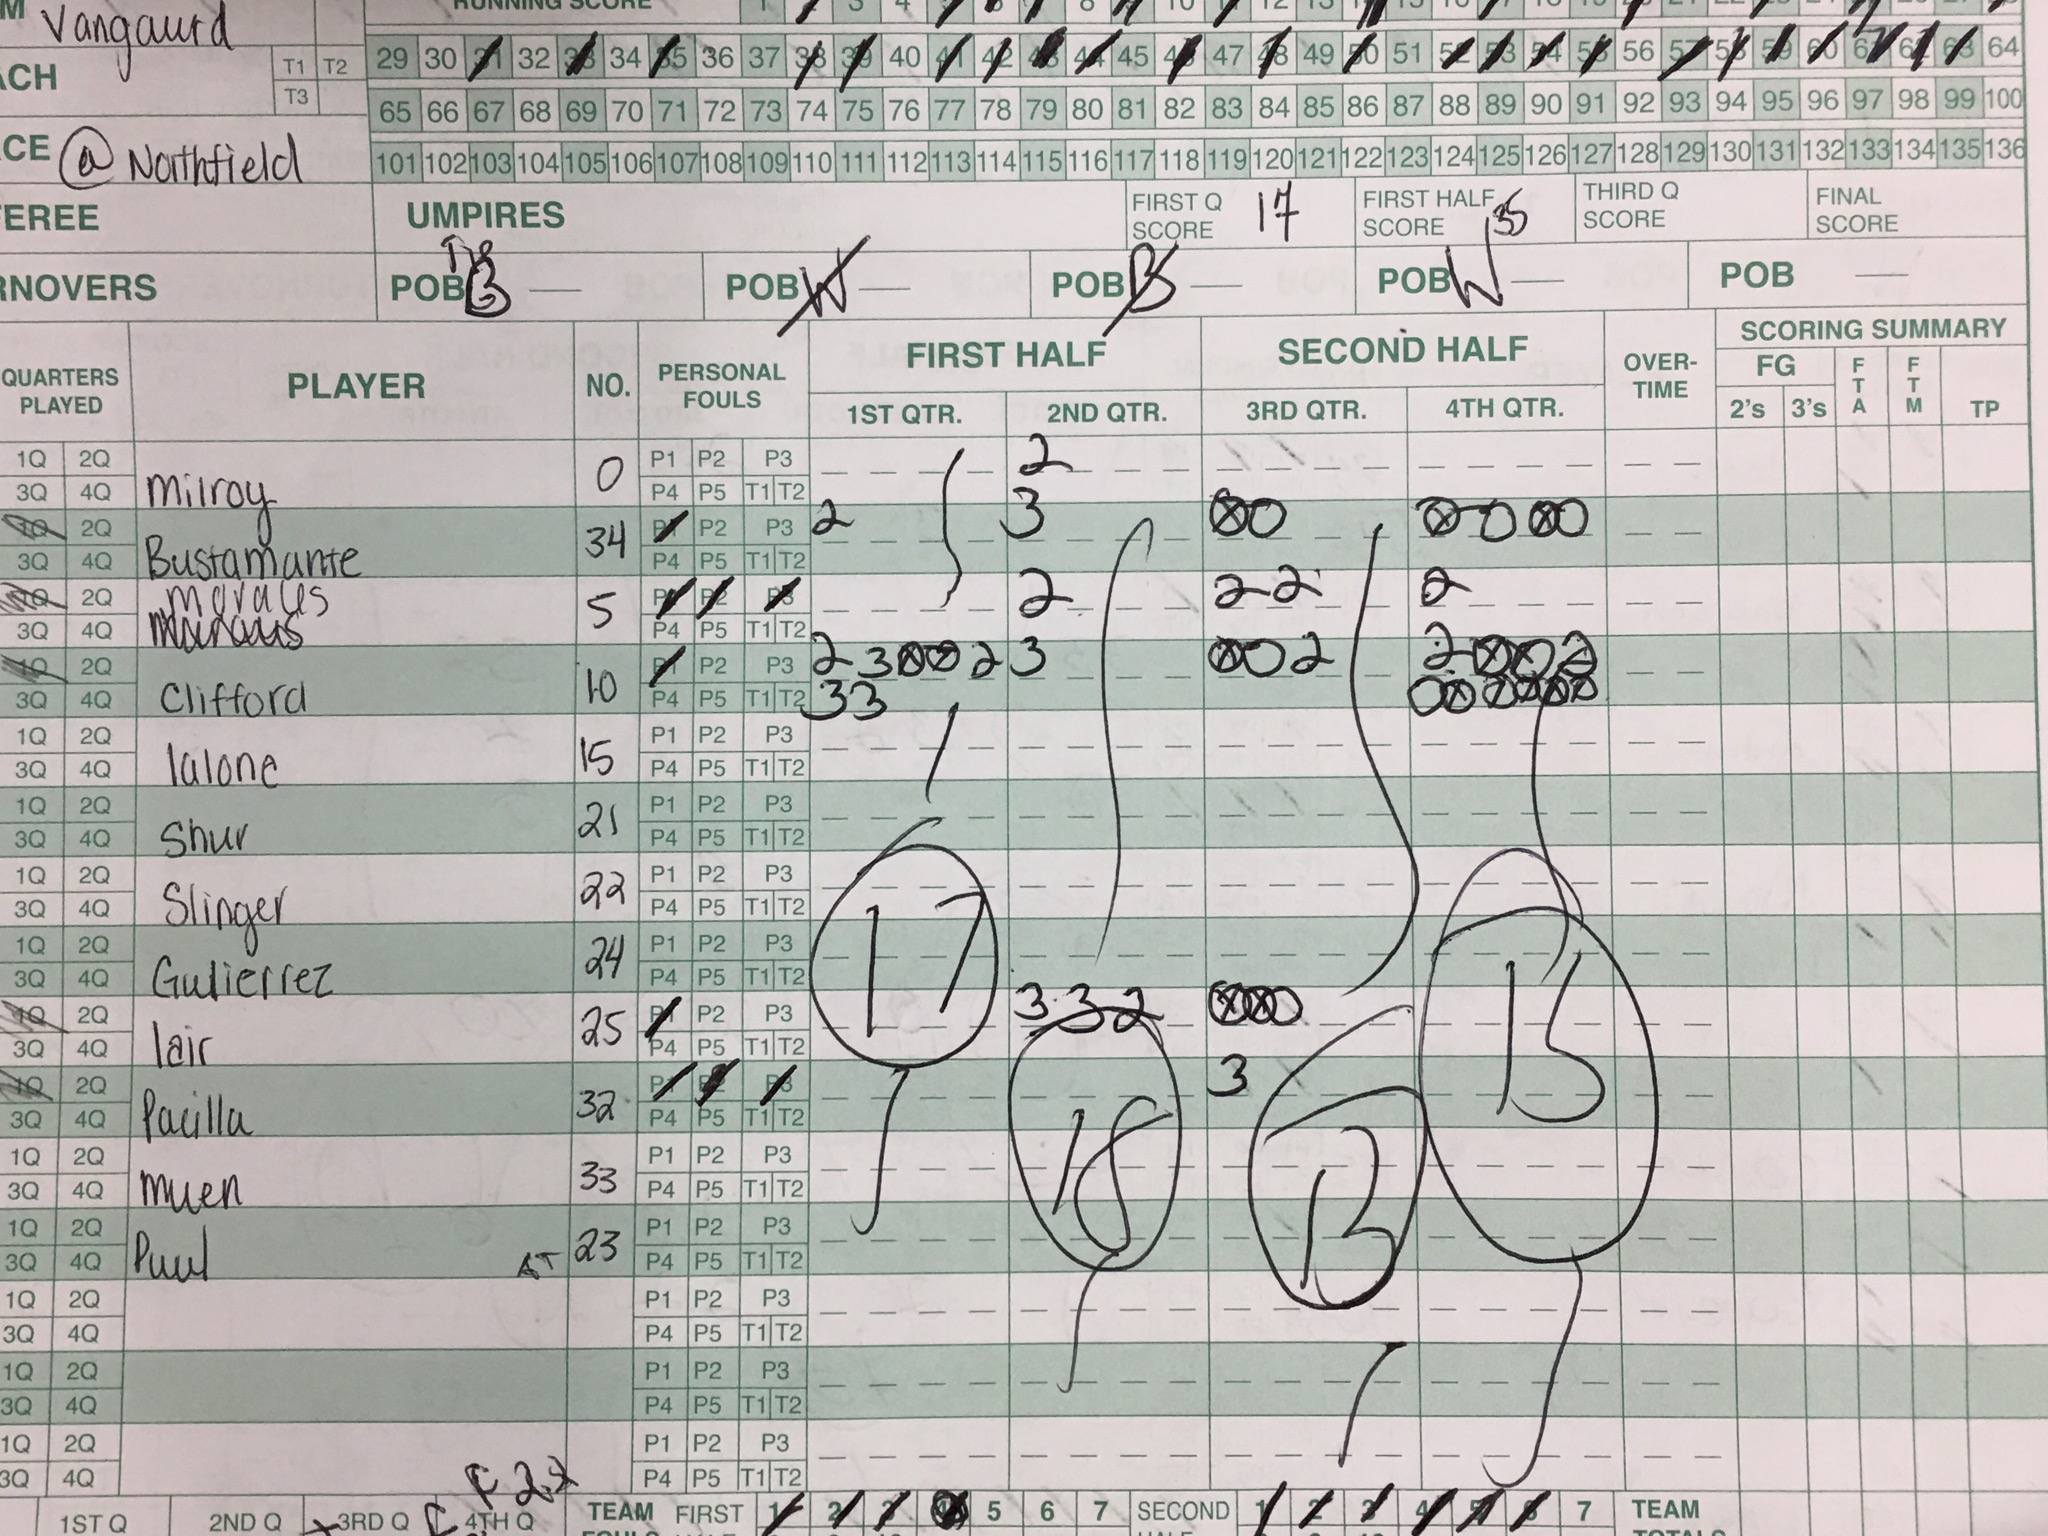 Vangaurd
RUNNING SCORE
ACH T1 T2
T3
29 30 31 32 33 34 35 36 37 38 39 40 41 42 43 44 45 46 47 48 49 50 51 52 53 54 55 56 57 58 59 60 61 62 63 64
65 66 67 68 69 70 71 72 73 74 75 76 77 78 79 80 81 82 83 84 85 86 87 88 89 90 91 92 93 94 95 96 97 98 99 100
CE @ Northfield
101 102 103 104 105 106 107 108 109 110 111 112 113 114 115 116 117 118 119 120 121 122 123 124 125 126 127 128 129 130 131 132 133 134 135 136
FEREE UMPIRES FIRST Q SCORE 17 FIRST HALF SCORE 35 THIRD Q SCORE FINAL SCORE
RNOVERS POB B POB W POB B POB W POB
QUARTERS PLAYED PLAYER NO. PERSONAL FOULS FIRST HALF SECOND HALF OVER-TIME SCORING SUMMARY
1ST QTR. 2ND QTR. 3RD QTR. 4TH QTR. FG 2's 3's FTA FTM TP
1Q 2Q P1 P2 P3 2
3Q 4Q Milroy 0 P4 P5 T1 T2
1Q 2Q 34 P1 P2 P3 2 3
3Q 4Q Bustamante P4 P5 T1 T2
1Q 2Q 5 P1 P2 P3 2 2 2 2
3Q 4Q P4 P5 T1 T2
1Q 2Q P1 P2 P3 2 3 2 3 2 2 2
3Q 4Q Clifford 10 P4 P5 T1 T2 3 3
1Q 2Q P1 P2 P3
3Q 4Q lalone 15 P4 P5 T1 T2
1Q 2Q P1 P2 P3
3Q 4Q Shur 21 P4 P5 T1 T2
1Q 2Q P1 P2 P3
3Q 4Q Slinger 22 P4 P5 T1 T2
17
1Q 2Q P1 P2 P3
3Q 4Q Gutierrez 24 P4 P5 T1 T2
1Q 2Q P1 P2 P3 3 3 2
3Q 4Q lair 25 P4 P5 T1 T2
15
1Q 2Q P1 P2 P3 3
3Q 4Q Pacilla 32 P4 P5 T1 T2
1Q 2Q P1 P2 P3
3Q 4Q Muen 33 P4 P5 T1 T2
18 13
1Q 2Q P1 P2 P3
3Q 4Q Puul AT 23 P4 P5 T1 T2
1Q 2Q P1 P2 P3
3Q 4Q P4 P5 T1 T2
1Q 2Q P1 P2 P3
3Q 4Q P4 P5 T1 T2
1Q 2Q P1 P2 P3
3Q 4Q P4 P5 T1 T2
1ST Q 2ND Q 3RD Q 4TH Q TEAM FIRST 1 2 3 4 5 6 7 SECOND 1 2 3 4 5 6 7 TEAM